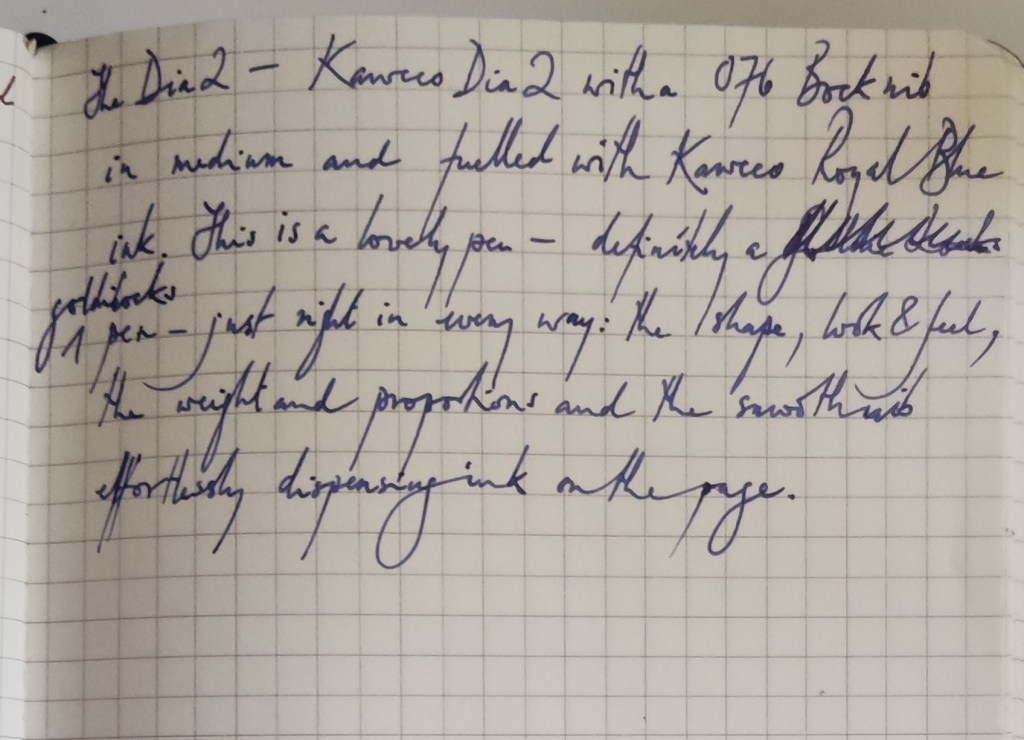 The Dia2 — Kaweco Dia2 with a 076 Bock nib
in medium and fuelled with Kaweco Royal Blue
ink. This is a lovely pen — definitely a
goldilocks
1 pen — just right in every way: the shape, look & feel,
the weight and proportions and the smooth nib
effortlessly dispensing ink on the page.